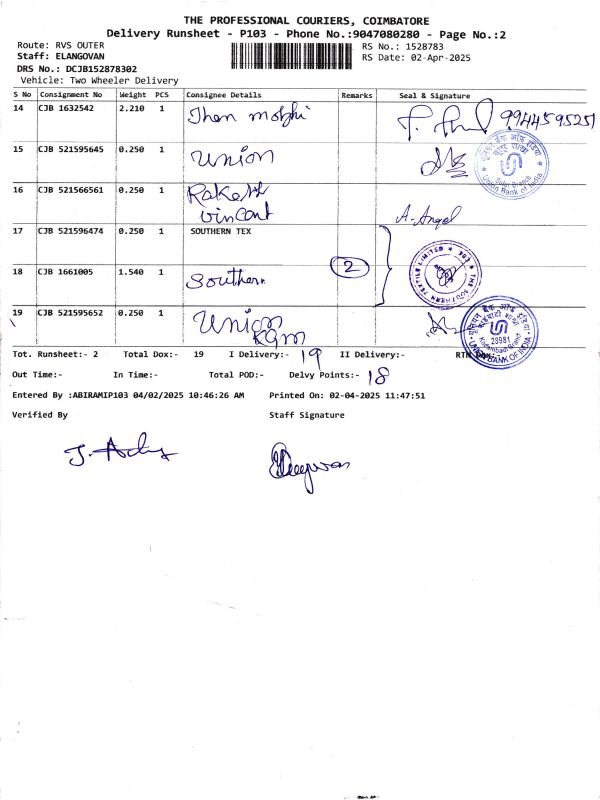 THE PROFESSIONAL COURIERS, COIMBATORE
Delivery Runsheet - P103 - Phone No.:9047080280 - Page No.:2
Route: RVS OUTER
RS No.: 1528783
Staff: ELANGOVAN
RS Date: 02-Apr-2025
DRS No.: DCJB152878302
Vehicle: Two Wheeler Delivery
S No Consignment No Weight PCS Consignee Details Remarks Seal & Signature
14 CJB 1632542 2.210 1 Then mozhi 9944595251
15 CJB 521595645 0.250 1 Union
यूनियन बैंक ऑफ इंडिया
Union Bank of India
16 CJB 521566561 0.250 1 Rakesh
Vincent A-Angel
17 CJB 521596474 0.250 1 SOUTHERN TEX
18 CJB 1661005 1.540 1 Southern 2
19 CJB 521595652 0.250 1 Union
KGM
यूनियन बैंक ऑफ इंडिया
29981
UNION BANK OF INDIA
Tot. Runsheet:- 2 Total Dox:- 19 I Delivery:- 19 II Delivery:- RTN Dox:-
Out Time:- In Time:- Total POD:- Delvy Points:- 18
Entered By :ABIRAMIP103 04/02/2025 10:46:26 AM Printed On: 02-04-2025 11:47:51
Verified By Staff Signature